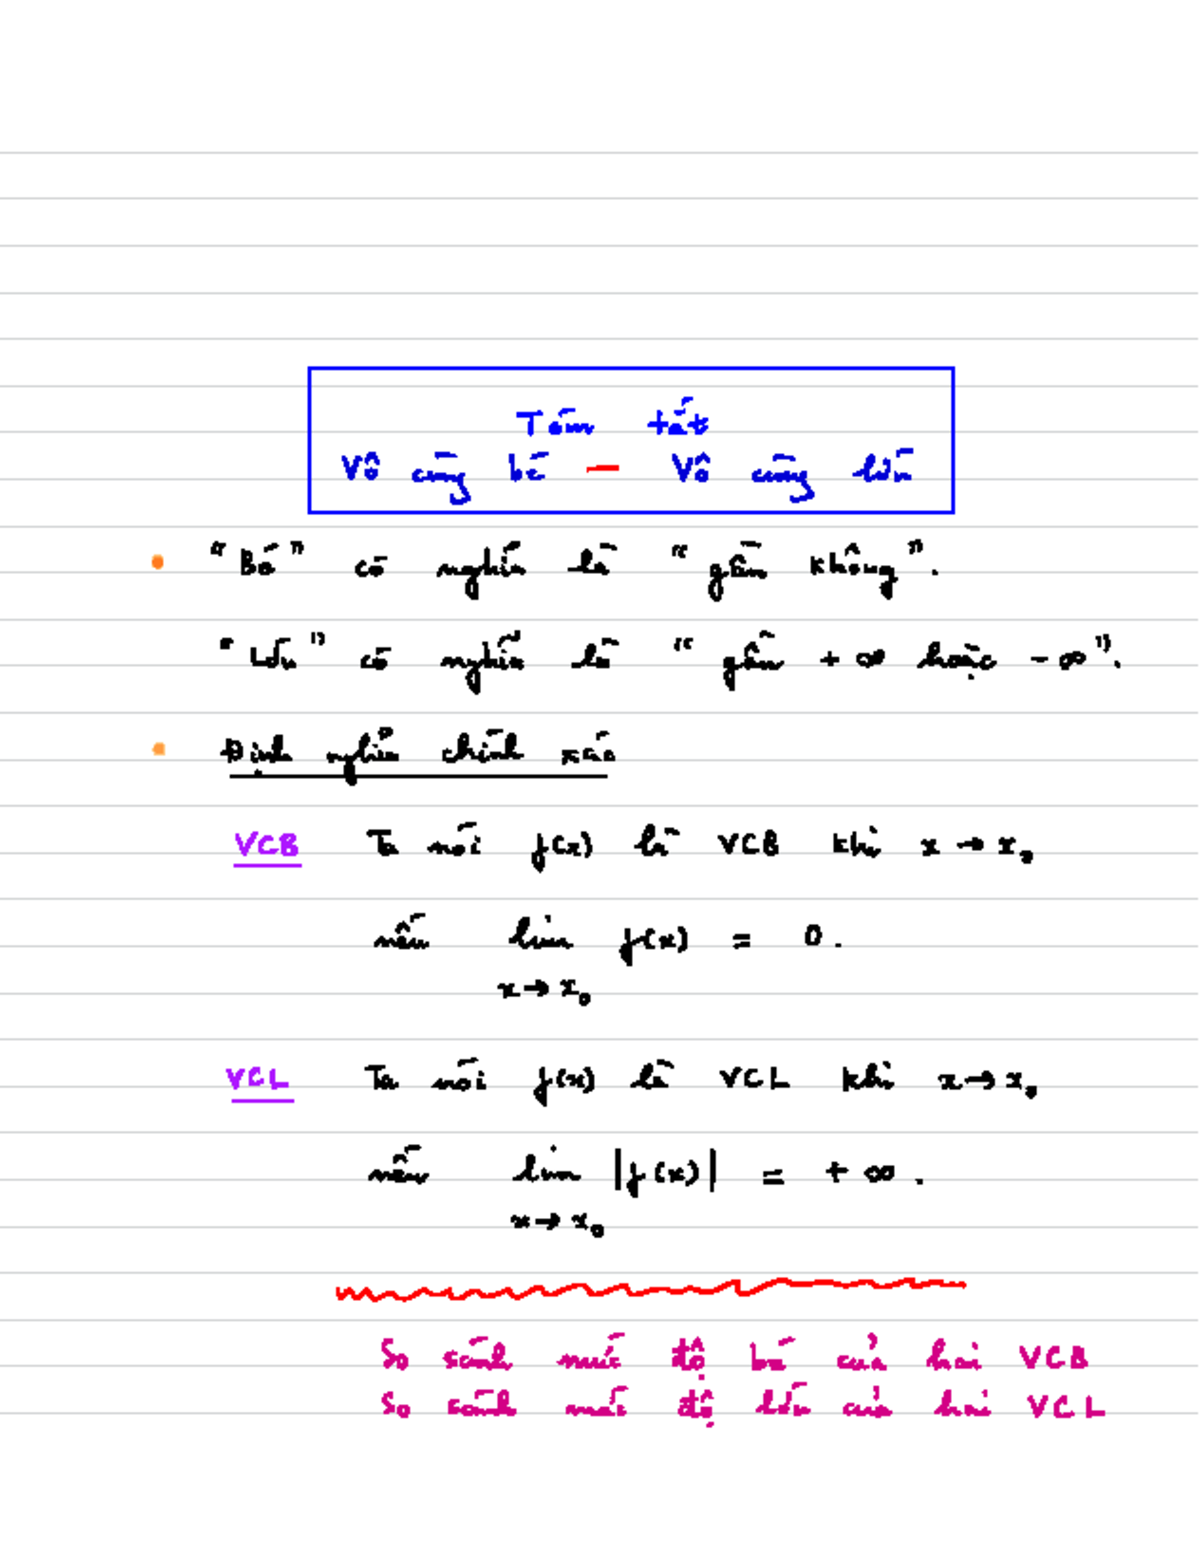 Tóm tắt
Vô cùng bé — Vô cùng lớn
• "Bé" có nghĩa là "gần không".
"Lớn" có nghĩa là "gần +∞ hoặc -∞".
• Định nghĩa chính xác
VCB Ta nói f(x) là VCB khi x → x₀
nếu lim f(x) = 0.
x → x₀
VCL Ta nói f(x) là VCL khi x → x₀
nếu lim |f(x)| = +∞.
x → x₀
So sánh mức độ bé của hai VCB
So sánh mức độ lớn của hai VCL